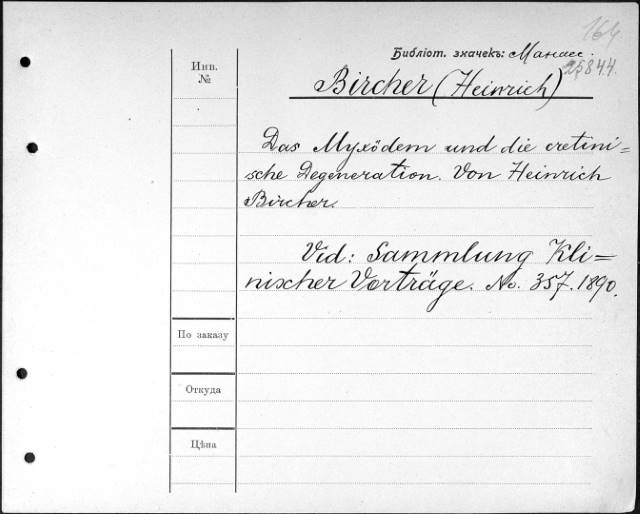 164
Библіот. значекъ: Манасс.
25844.
Инв.
№
Bircher (Heinrich)
Das Myxödem und die cretini=
sche Degeneration. Von Heinrich
Bircher.
Vid: Sammlung Kli=
nischer Vorträge. No. 357. 1890.
По заказу
Откуда
Цѣна